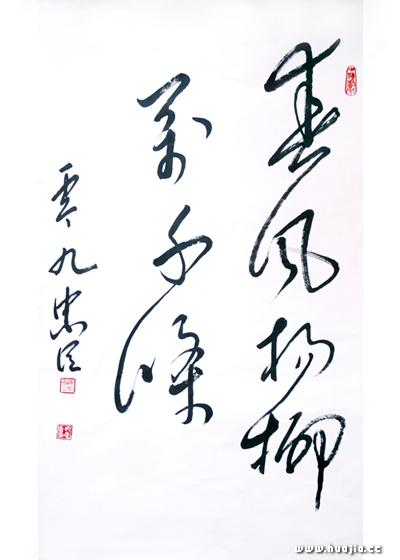 春风杨柳
万千條
www.huajia.cc